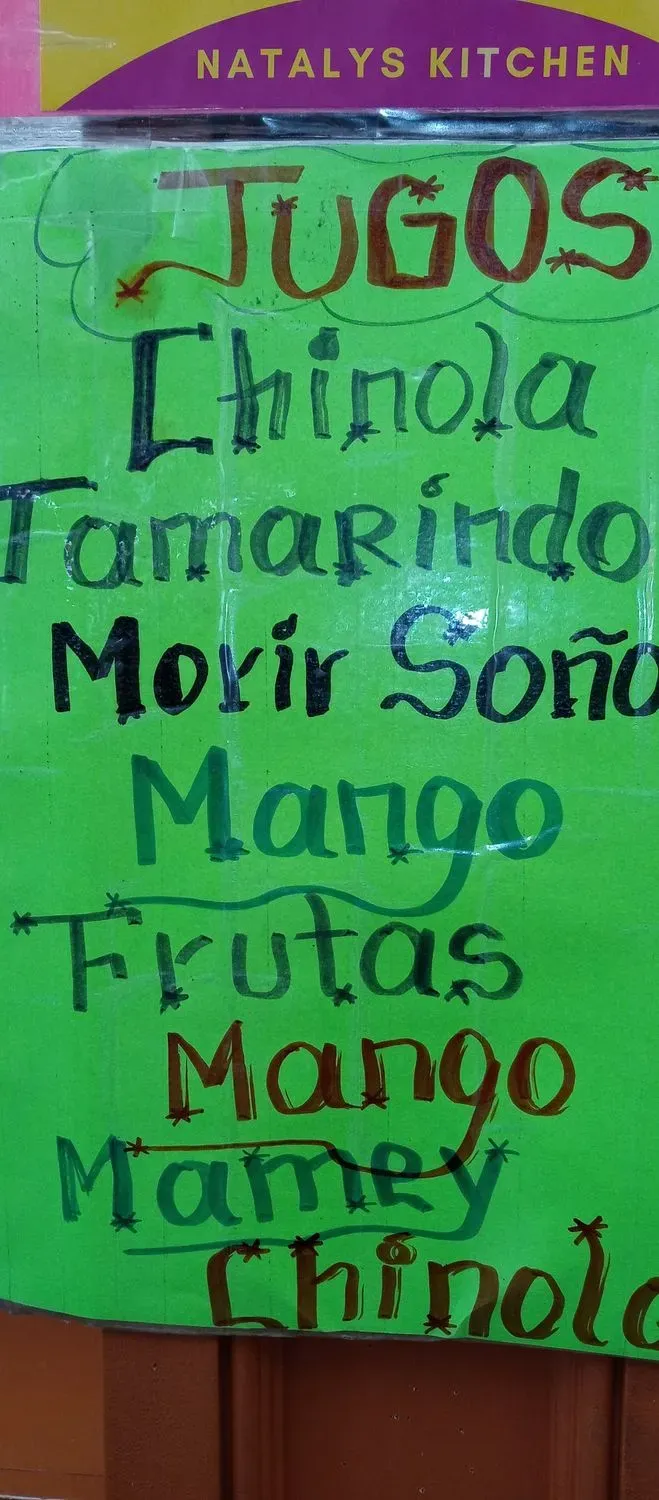 NATALYS KITCHEN
JUGOS
Chinola
Tamarindo
Morir Soño
Mango
Frutas
Mango
Mamey
Chinola